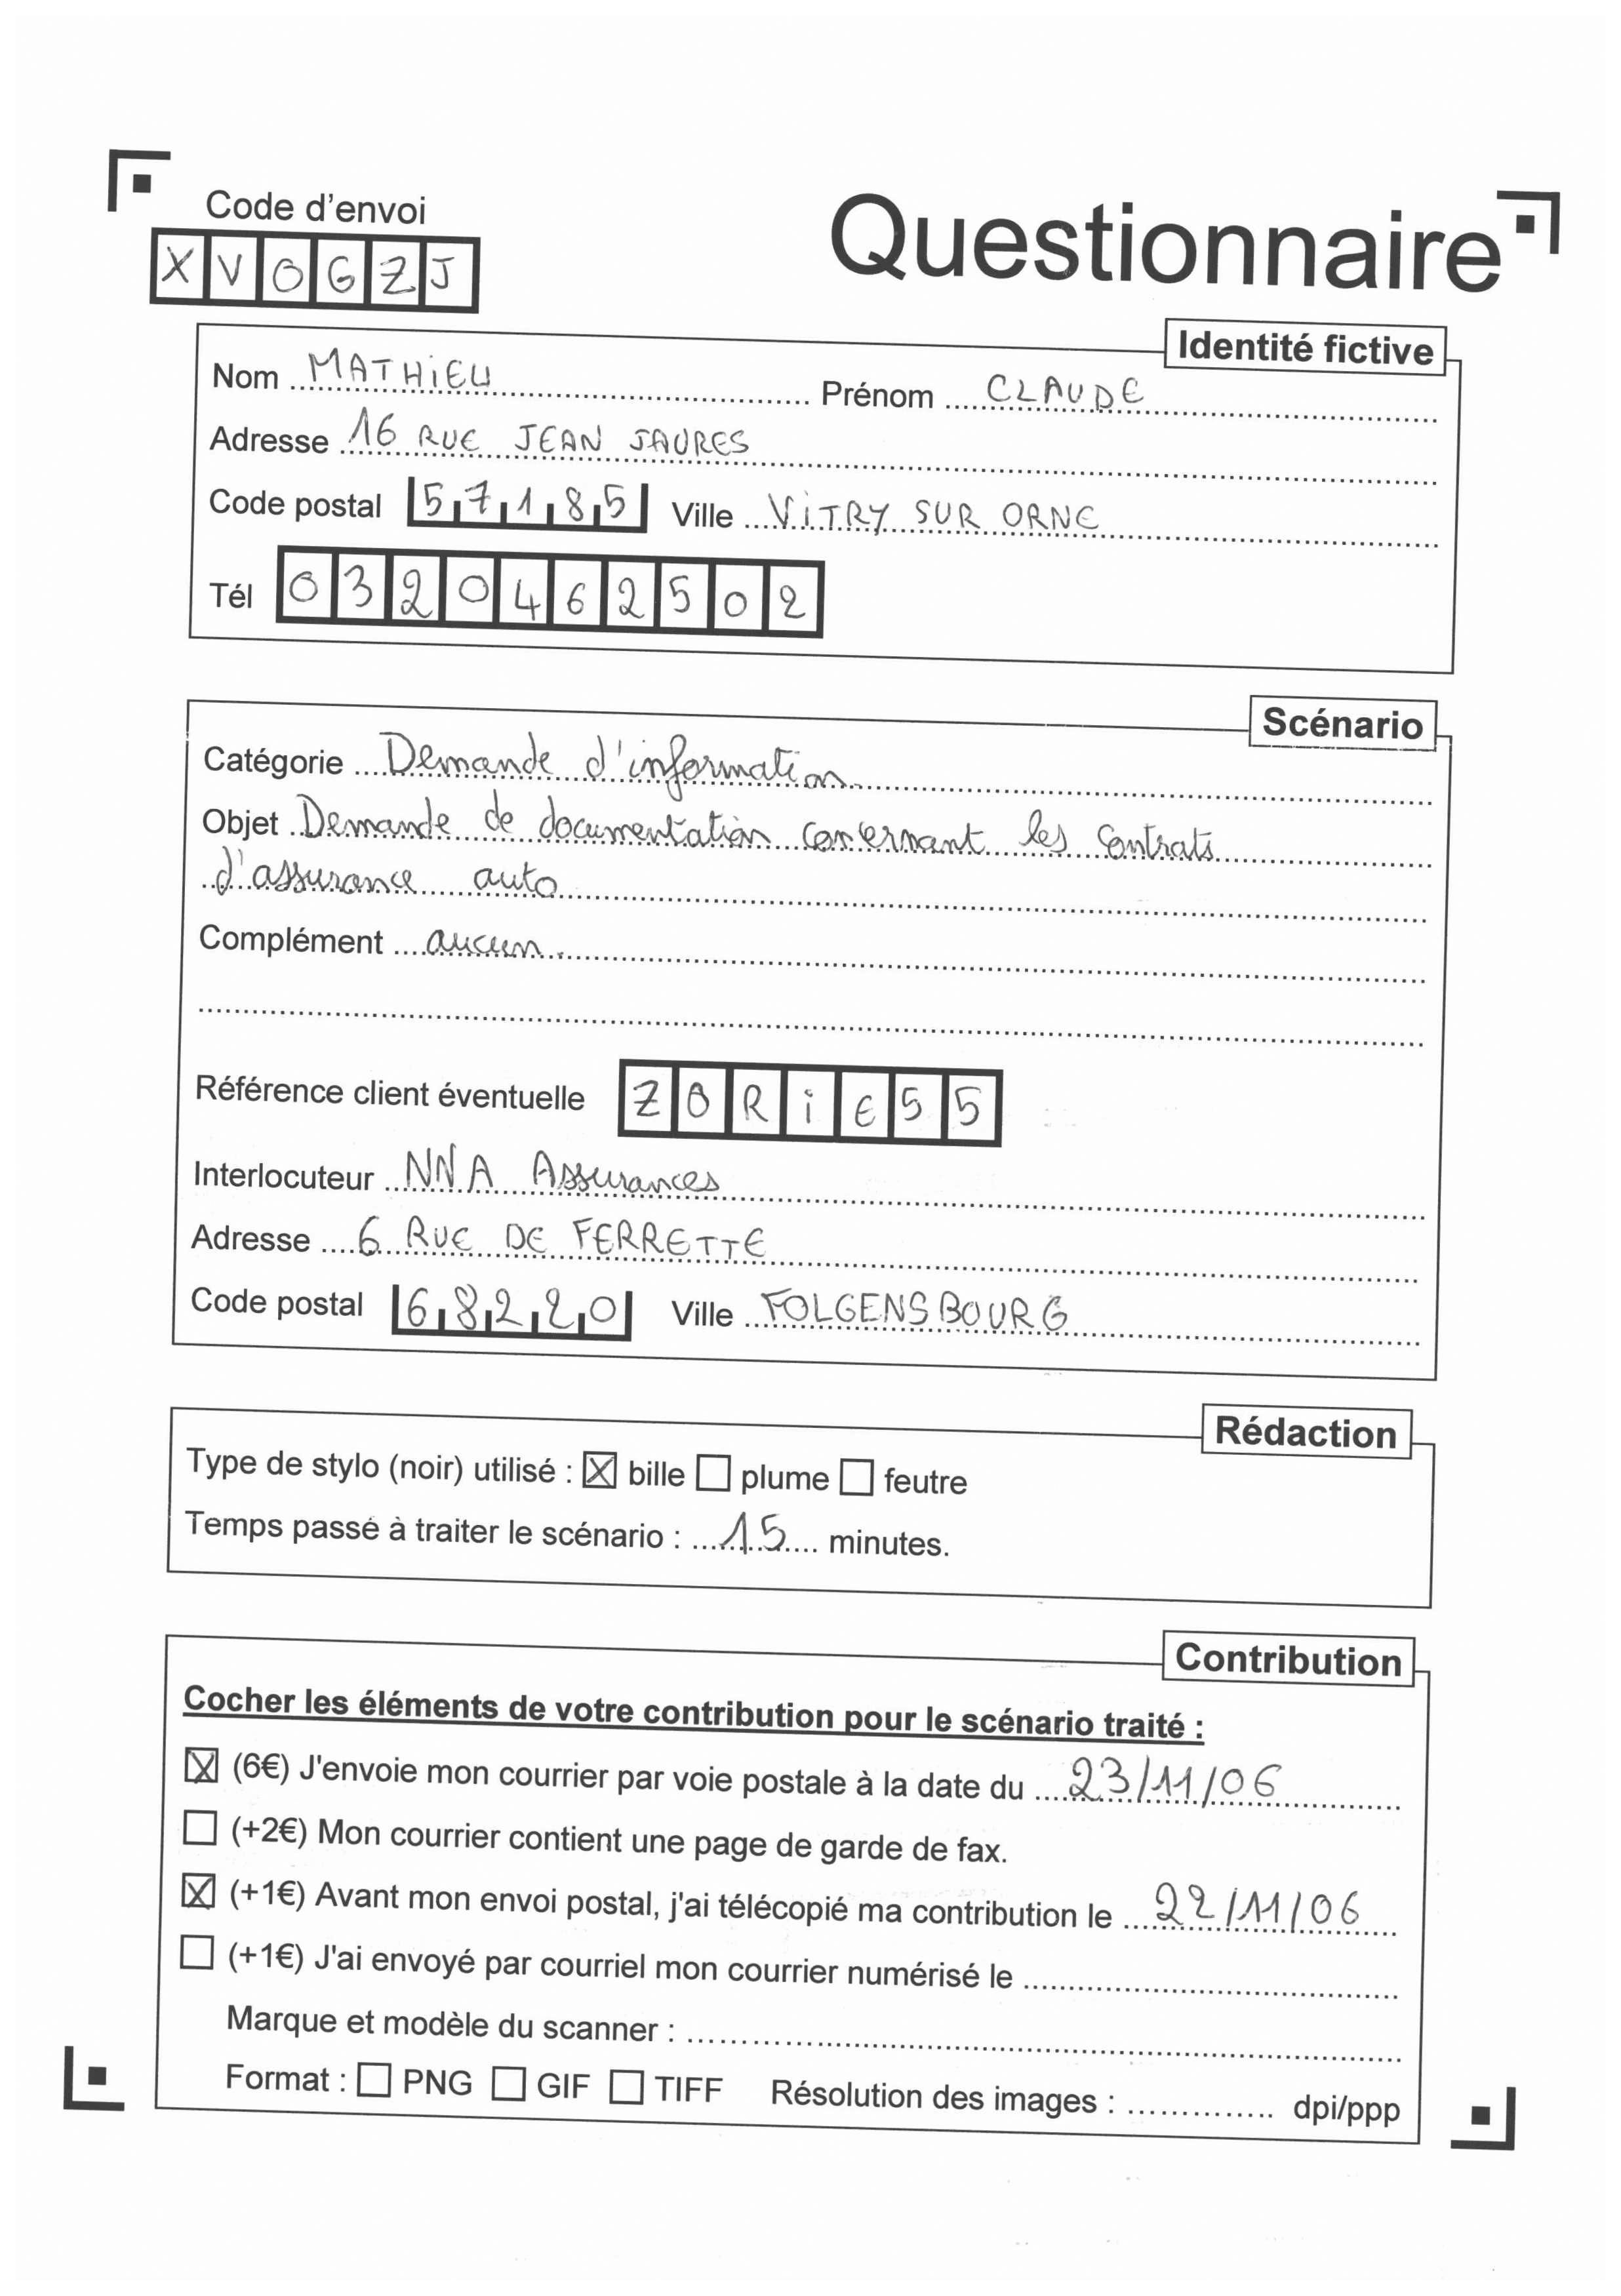 Code d'envoi
XVOGZJ
Questionnaire
Identité fictive
Nom MATHiEU Prénom CLAUDE
Adresse 16 RUE JEAN JAURES
Code postal 57185 Ville ViTRY SUR ORNE
Tél 0320462502
Scénario
Catégorie Demande d'information
Objet Demande de documentation concernant les contrats
d'assurance auto
Complément aucun.
Référence client éventuelle ZORiE55
Interlocuteur NNA Assurances
Adresse 6 RUE DE FERRETTE
Code postal 68220 Ville FOLGENSBOURG
Rédaction
Type de stylo (noir) utilisé : ☒ bille ☐ plume ☐ feutre
Temps passé à traiter le scénario : 15 minutes.
Contribution
Cocher les éléments de votre contribution pour le scénario traité :
☒ (6€) J'envoie mon courrier par voie postale à la date du 23/11/06
☐ (+2€) Mon courrier contient une page de garde de fax.
☒ (+1€) Avant mon envoi postal, j'ai télécopié ma contribution le 22/11/06
☐ (+1€) J'ai envoyé par courriel mon courrier numérisé le
Marque et modèle du scanner :
Format : ☐ PNG ☐ GIF ☐ TIFF Résolution des images : dpi/ppp